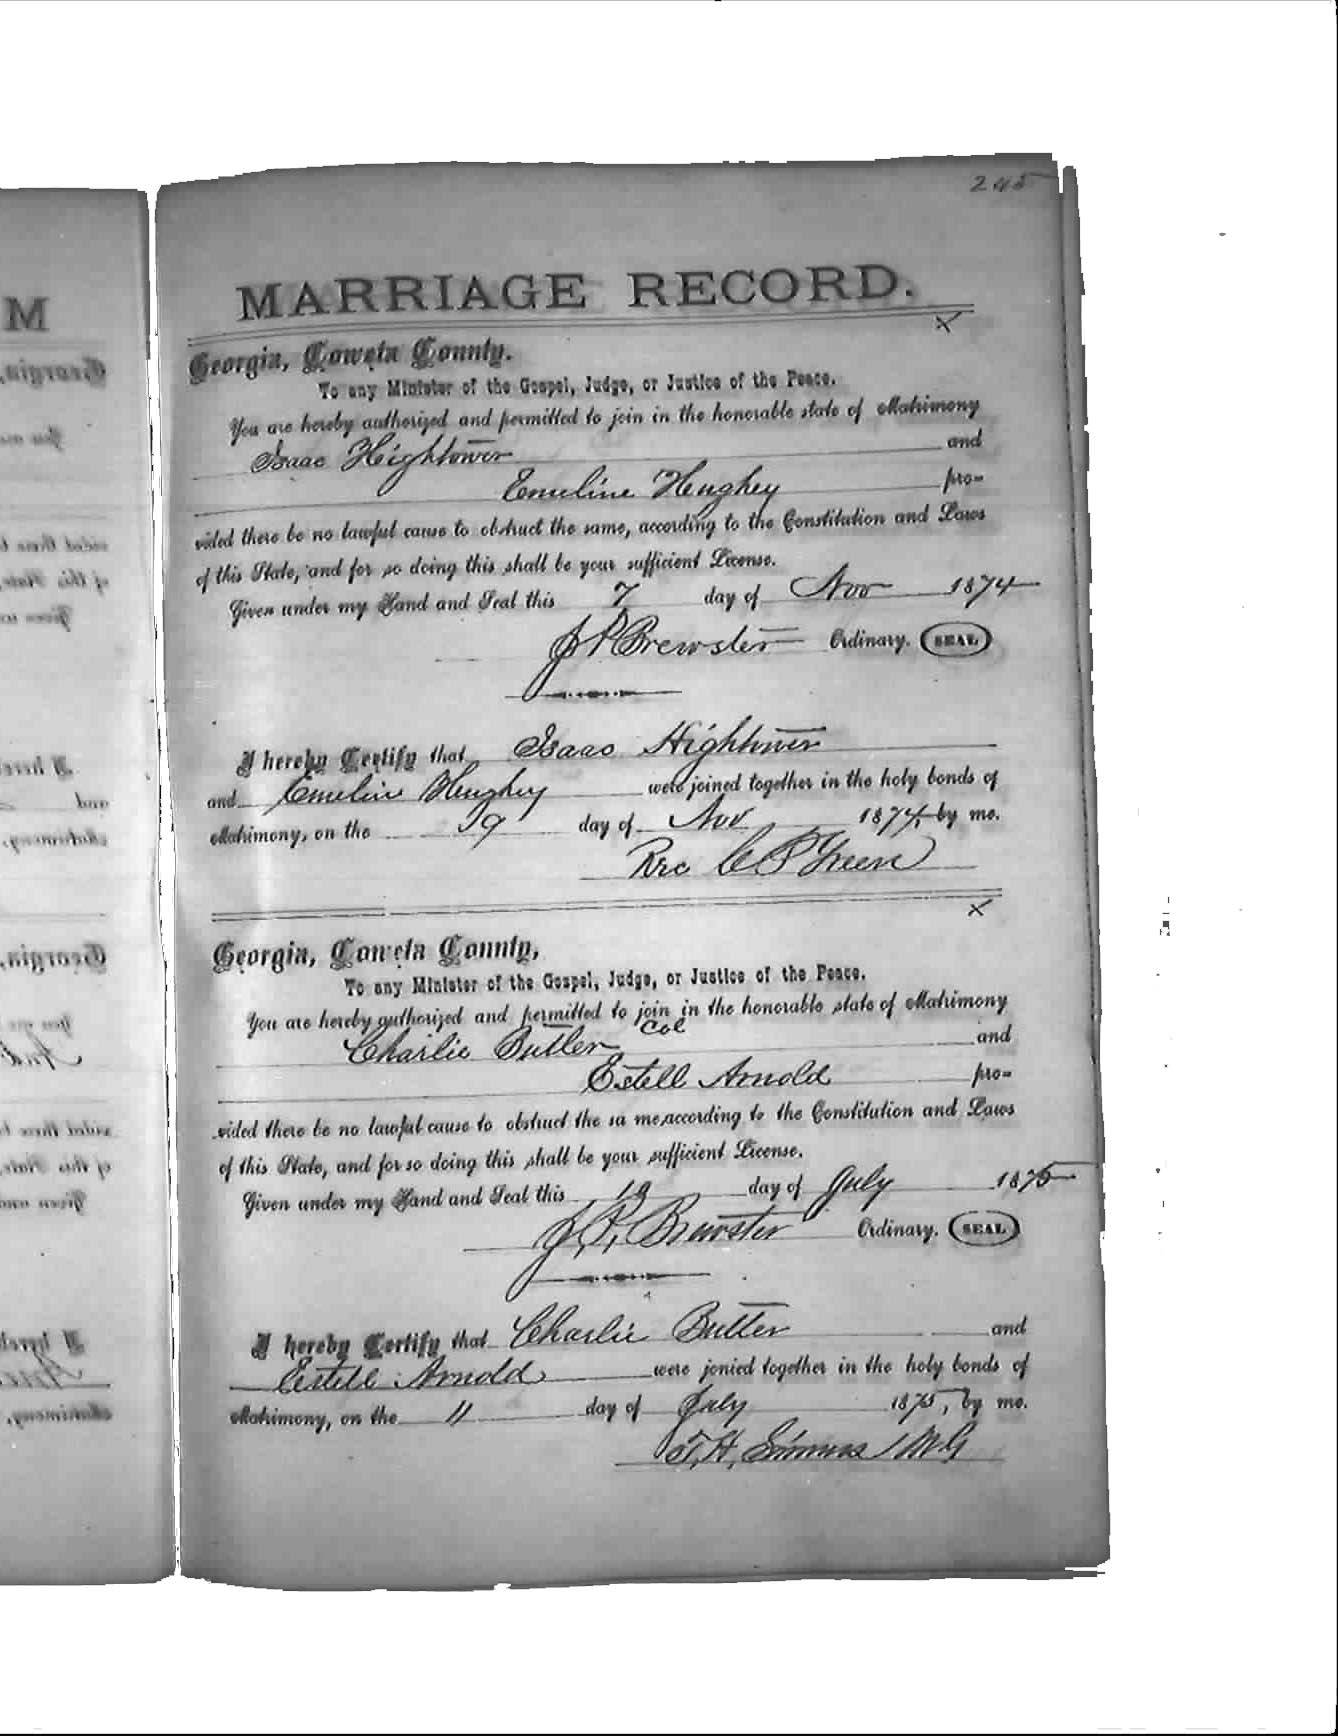 245
MARRIAGE RECORD.
X
Georgia, Coweta County.
To any Minister of the Gospel, Judge, or Justice of the Peace.
You are hereby authorized and permitted to join in the honorable state of Matrimony
Isaac Hightower and
Emeline Hughey pro-
vided there be no lawful cause to obstruct the same, according to the Constitution and Laws
of this State, and for so doing this shall be your sufficient License.
Given under my Hand and Seal this 7 day of Nov 1874
J P Brewster Ordinary. SEAL
I hereby Certify that Isaac Hightower
and Emeline Hughey were joined together in the holy bonds of
Matrimony, on the 19 day of Nov 1874, by me.
Rev C P Green
X
Georgia, Coweta County,
To any Minister of the Gospel, Judge, or Justice of the Peace.
You are hereby authorized and permitted to join in the honorable state of Matrimony
Charlie Butler Col and
Estell Arnold pro-
vided there be no lawful cause to obstruct the sa me,according to the Constitution and Laws
of this State, and for so doing this shall be your sufficient License.
Given under my Hand and Seal this 10 day of July 1875
J. P. Brewster Ordinary. SEAL
I hereby Certify that Charlie Butler and
Estell Arnold were jonied together in the holy bonds of
Matrimony, on the 11 day of July 1875, by me.
T. H. Simms M G